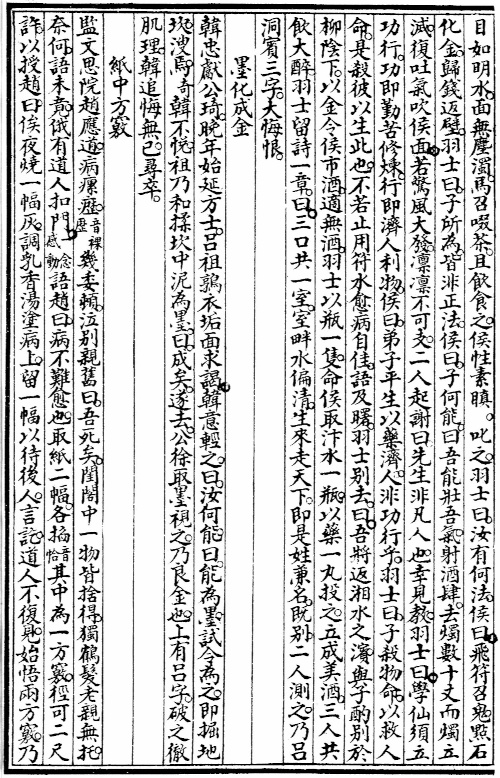 目如明水面無塵濁焉召啜茶且飲食之侯性素瞋叱之羽士曰汝有何法侯曰飛符召鬼點石
化金歸錢返壁羽士曰子所為皆非正法侯曰子何能曰吾能壯吾氣射酒肆去燭數十丈而燭立
滅復吐氣吹侯面若驚風大發凛凛不可支二人起謝曰先生非凡人也幸見教羽士曰學仙須立
功行功即勤苦修煉行即濟人利物侯曰弟子平生以藥濟人非功行乎羽士曰子殺物命以救人
命是殺彼以生此也不若止用符水愈病自佳語及曙羽士別去曰吾將返湘水之濱與子酌別於
柳陰下以金令侯市酒適無酒羽士以瓶一隻命侯取汴水一瓶以藥一丸投之立成美酒三人共
飲大醉羽士留詩一章曰三口共一室室畔水偏清生來走天下即是姓兼名既別二人測之乃呂
洞賓三字大悔恨
墨化成金
韓忠獻公琦晚年始延方士呂祖鶉衣垢面求謁韓意輕之曰汝何能曰能為墨試令為之即掘地
坎溲焉韓不悅祖乃和揉坎中泥為墨曰成矣遂去公徐取墨視之乃良金也上有呂字破之徹
肌理韓追悔無已尋卒
紙中方竅
監文思院趙應道病瘰癧音裸歷幾委頓泣別親舊曰吾死矣閨閤中一物皆捨得獨鶴髮老親無托
奈何語未竟俄有道人扣門一念感動語趙曰病不難愈也取紙二幅各掐音恰其中為一方竅徑可二尺
許以授趙曰俟夜燒一幅灰調乳香湯塗病上留一幅以待後人言訖道人不復見始悟兩方竅乃